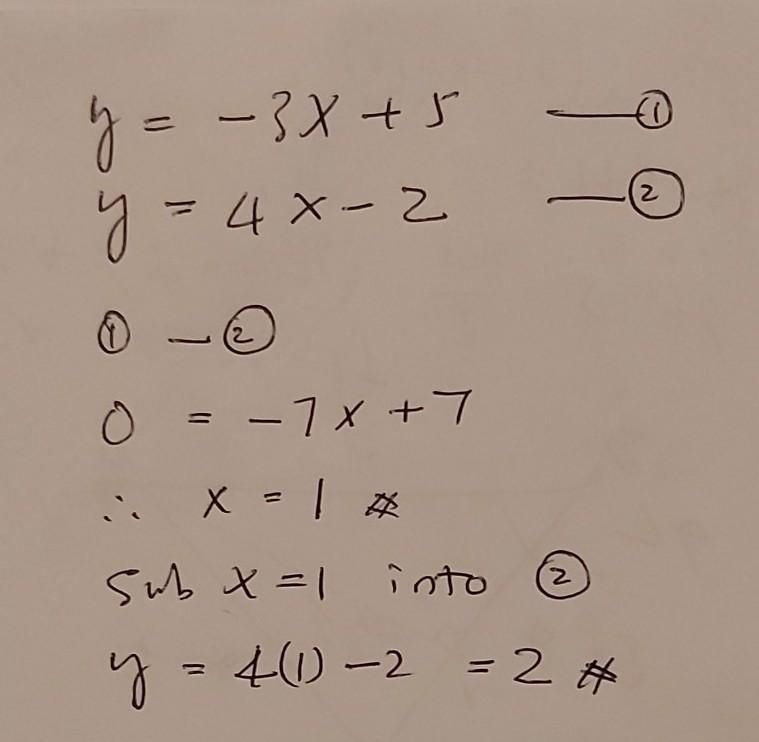 y = -3x + 5 —①
y = 4x - 2 —②
① - ②
0 = -7x + 7
∴ x = 1 #
Sub x = 1 into ②
y = 4(1) - 2 = 2 #